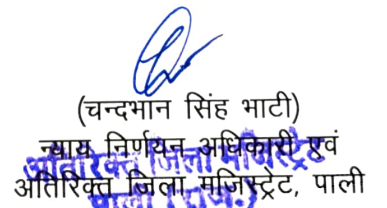 (चन्दभान सिंह भाटी)
न्याय निर्णयन अधिकारी एवं
अतिरिक्त जिला मजिस्ट्रेट
अतिरिक्त जिला मजिस्ट्रेट, पाली
पाली (राज.)